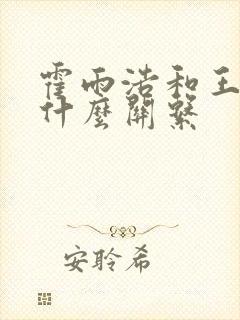 霍雨浩和王
什麼關繫
安聆希